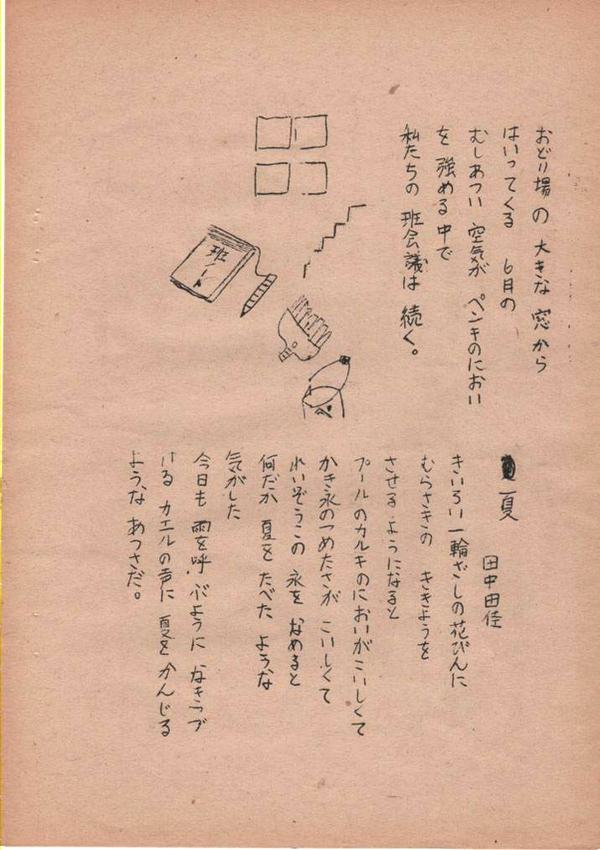 おどり場の大きな窓から
はいってくる 6月の
むしあつい 空気が ペンキのにおい
を 強める中で
私たちの 班会議は 続く。
班ノート
夏
田中田佳
きいろい一輪ざしの花びんに
むらさきの ききょうを
させるようになると
プールのカルキのにおいがこいしくて
かき氷のつめたさが こいしくて
れいぞうこの 氷を なめると
何だか 夏を たべた ような
気がした
今日も 雨を呼ぶように なきつづ
ける カエルの声に 夏を かんじる
ような あつさだ。